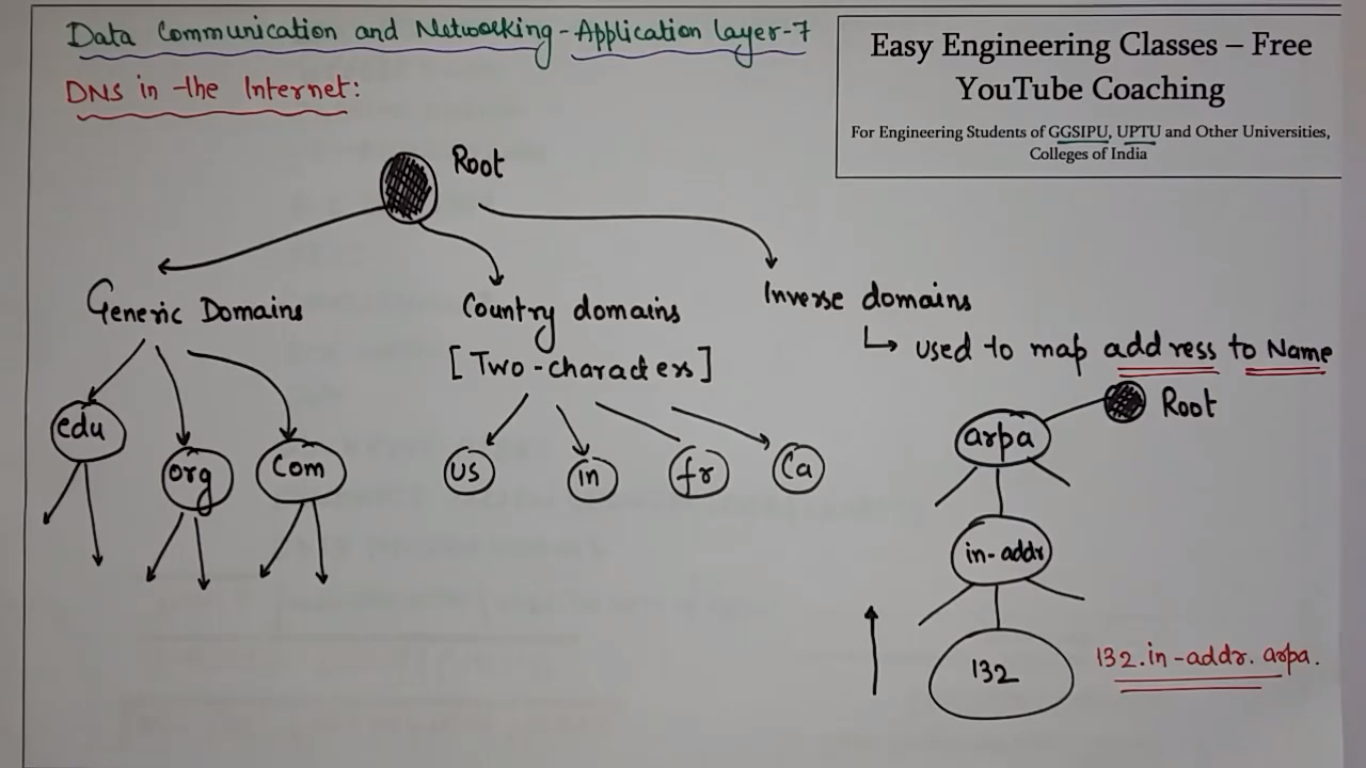 Data Communication and Networking - Application layer-7
Easy Engineering Classes – Free
YouTube Coaching
For Engineering Students of GGSIPU, UPTU and Other Universities,
Colleges of India
DNS in the Internet:
Root
Generic Domains
edu
org
Com
Country domains
[Two-characters]
us
in
fr
Ca
Inverse domains
↳ used to map address to Name
Root
arpa
in-addr
132
132.in-addr.arpa.